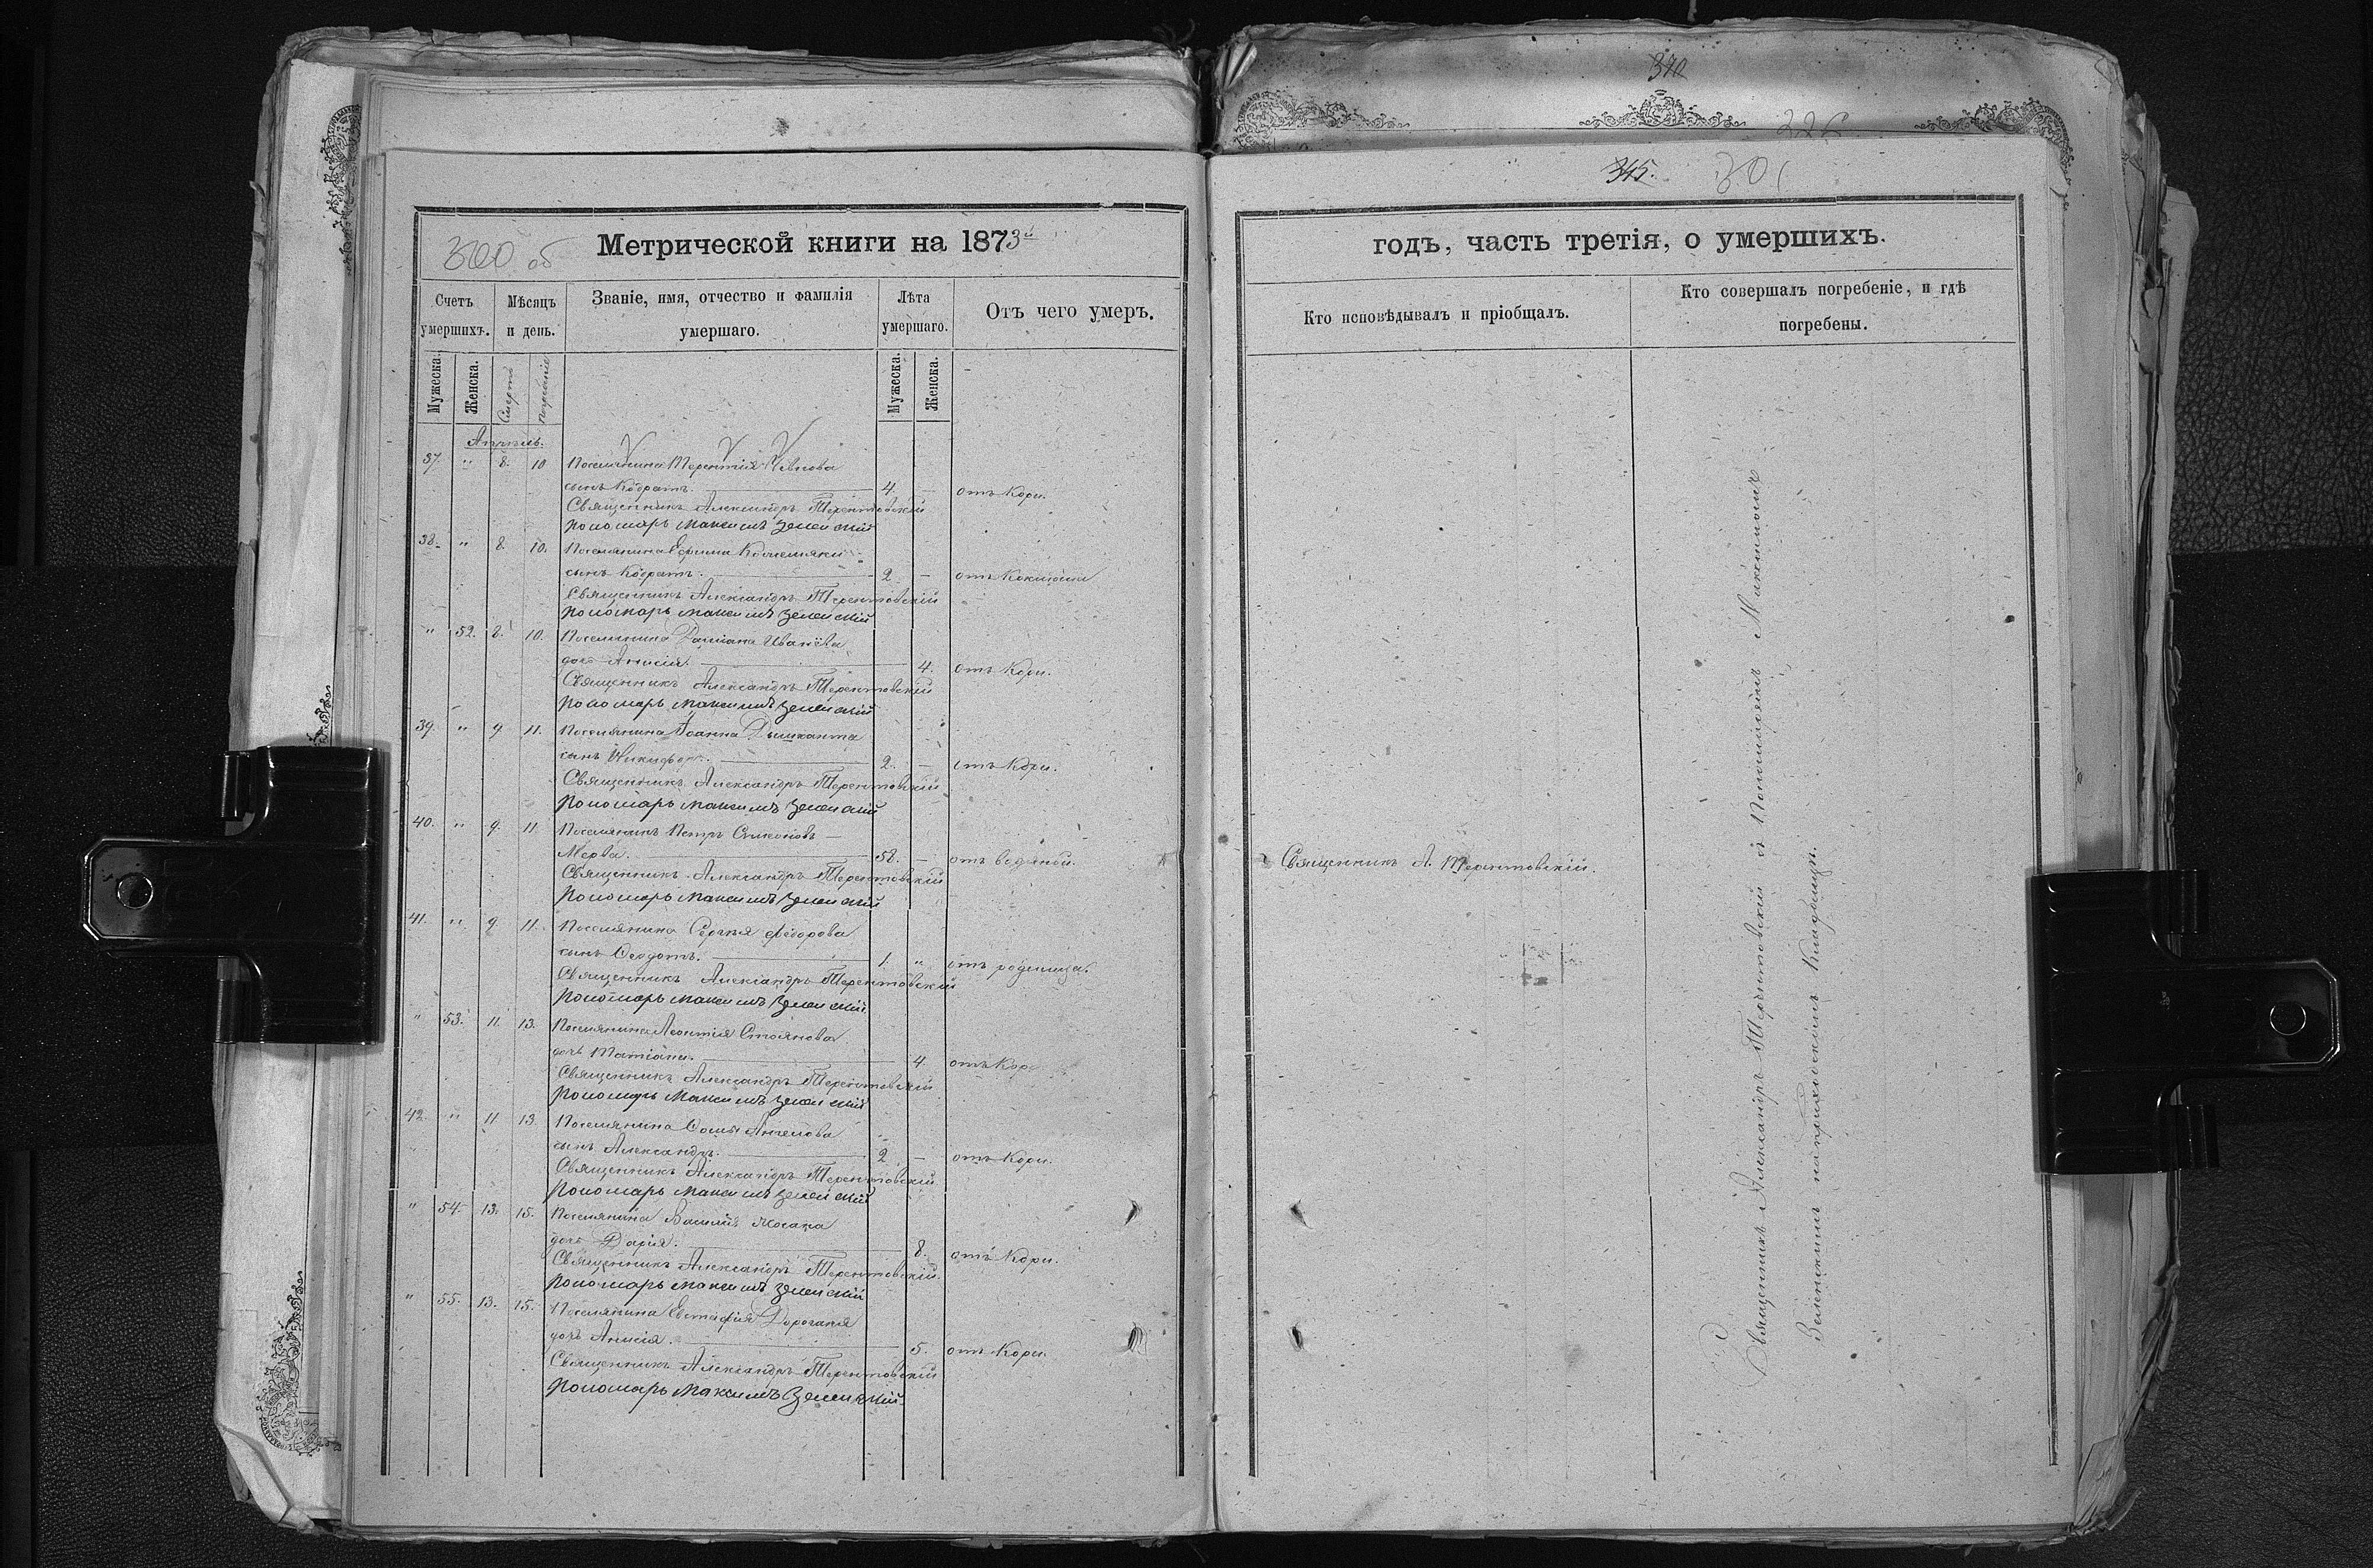 340
226
345. 301
300 об
Метрической книги на 1873й
годъ, часть третія, о умершихъ.
Счетъ умершихъ.
Мѣсяцъ и день.
Званіе, имя, отчество и фамилія умершаго.
Лѣта умершаго.
Отъ чего умеръ.
Кто исповѣдывалъ и пріобщалъ.
Кто совершалъ погребеніе, и гдѣ погребены.
Мужеска. Женска. Смерти погребенія Мужеска. Женска.
Апрѣль.
37. " 8. 10 Поселянина Терентія
сынъ Кодратъ. 4. — отъ Кори.
Священникъ Александръ Терентовскій
Пономарь Максимъ Зеленскій
38. " 8. 10. Поселянина Ефима
сынъ Кодратъ. 2 — отъ Коклюша
Священникъ Александръ Терентовскій
Пономарь Максимъ Зеленскій
" 52. 8. 10. Поселянина Даміана Иванова
дочь Анисія. 4. отъ Кори.
Священникъ Александръ Терентовскій
Пономарь Максимъ Зеленскій
39. " 9. 11. Поселянина Іоанна Дышканта
сынъ Никифоръ. 2. — отъ Кори.
Священникъ Александръ Терентовскій
Пономарь Максимъ Зеленскій
40. " 9. 11. Поселянинъ Петръ Симоновъ —
Мерва. 58. — отъ водяной.
Священникъ А. Терентовскій.
Священникъ Александръ Терентовскій
Пономарь Максимъ Зеленскій
41. " 9. 11. Поселянина Сергѣя Федорова
сынъ Феодотъ. 1. " отъ родимца.
Священникъ Александръ Терентовскій
Пономарь Максимъ Зеленскій
" 53. 11. 13. Поселянина Леонтія Стоянова
дочь Татіана. 4. отъ Кор
Священникъ Александръ Терентовскій
Пономарь Максимъ Зеленскій
42. " 11 13. Поселянина Сомы Ангелова
сынъ Александръ. 2 — отъ Кори.
Священникъ Александръ Терентовскій
Пономарь Максимъ Зеленскій
" 54. 13. 15. Поселянина Василія Мосака
дочь Дарія. 8. отъ Кори.
Священникъ Александръ Терентовскій.
Пономарь Максимъ Зеленскій
" 55. 13. 15. Поселянина Евстафія Дороганя
дочь Анисія. 5. отъ Кори.
Священникъ Александръ Терентовскій
Пономарь Максимъ Зеленскій.
Священникъ Александръ Терентовскій съ Пономаремъ Максимомъ
Зеленскимъ на приходскомъ Кладбищѣ.